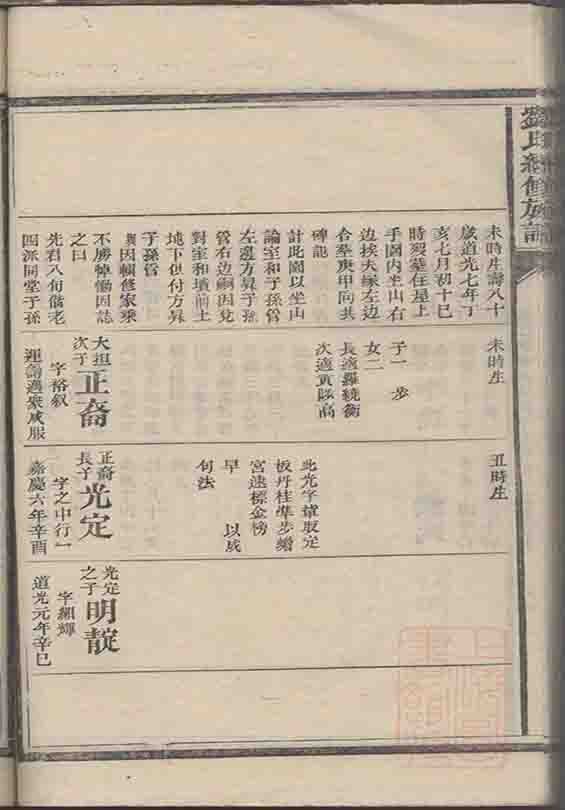 劉氏續修族譜
未時生壽八十
歲道光七年丁
亥七月初十巳
時歿葬住屋上
手園內坐山右
邊挨夫塚左邊
合墾庚甲向共
碑龍
計此園以坐山
論室和子孫管
左邊方昇子孫
管右邊嗣因兌
對室和墳前土
地下俱付方昇
子孫管
因輯修家乘
不勝悼慟因誌
之曰
先君八旬偕老
四派同堂子孫
未時生
子一 步
女二
長適羅繞衡
次適黃
大担
次子
正裔
字裕叙
運籌過眾咸服
丑時生
此光字輩取定
板丹桂準步蟾
宮速標金榜
早 以成
句法
正裔
長子
光定
字之中行一
嘉慶六年辛酉
光定
之子
明靛
字顯輝
道光元年辛巳